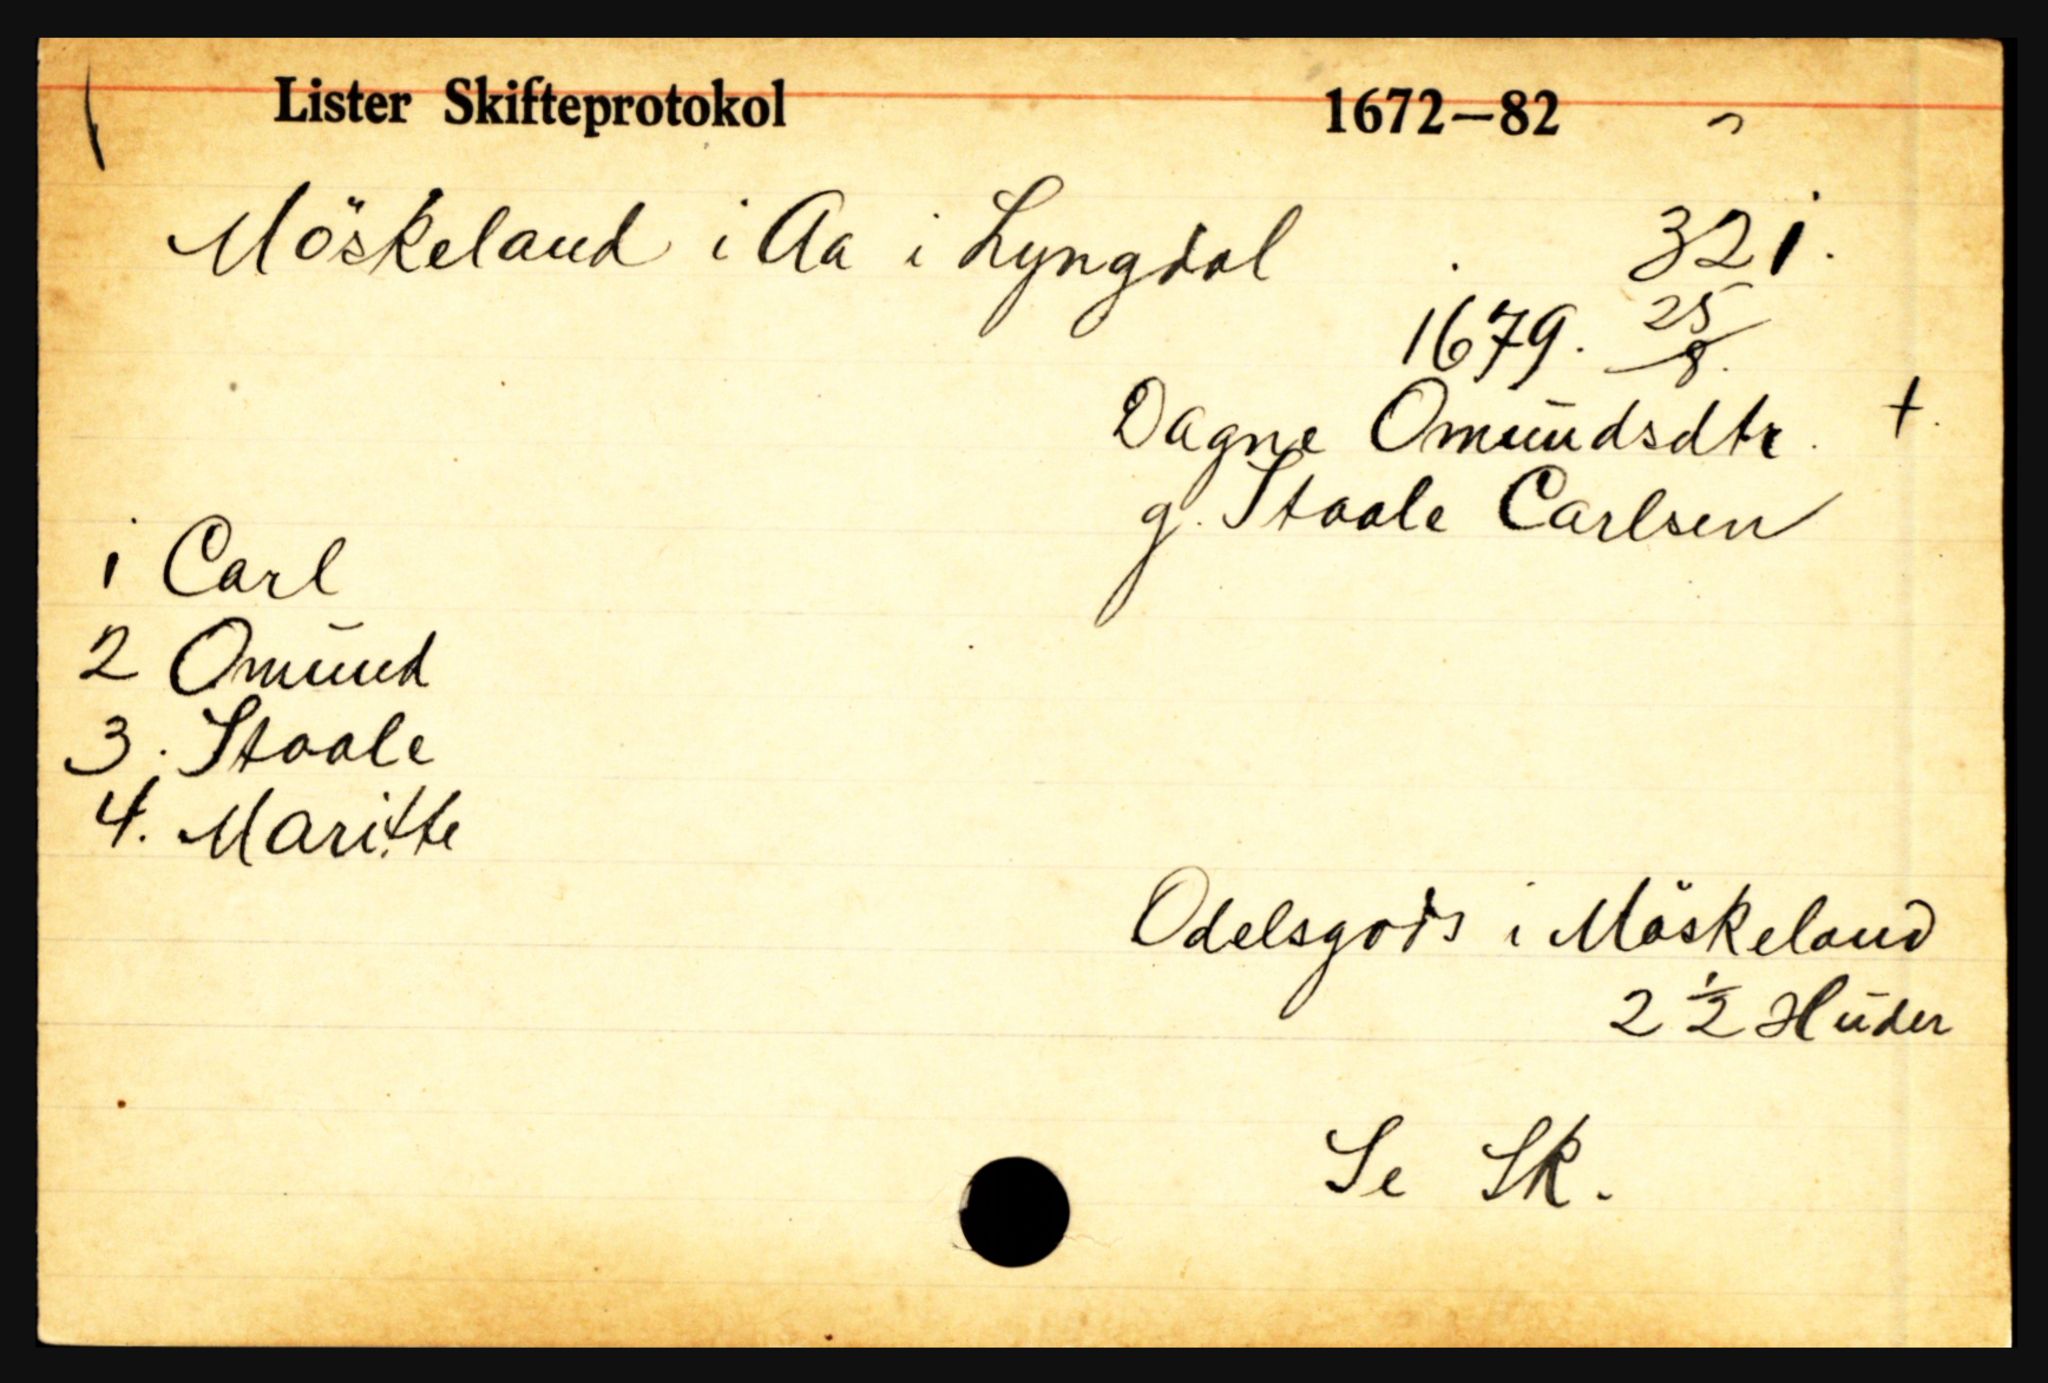 Lister Skifteprotokol 1672—82
Möskeland i Aa i Lyngdal 321.
1679. 25/8.
Dagne Omŭndsdtr. +.
g. Staale Carlsen
1 Carl
2 Omūnd
3. Staale
4. Maritte
Odelsgods i Möskeland
2 1/2 Hūder
Se Sk.